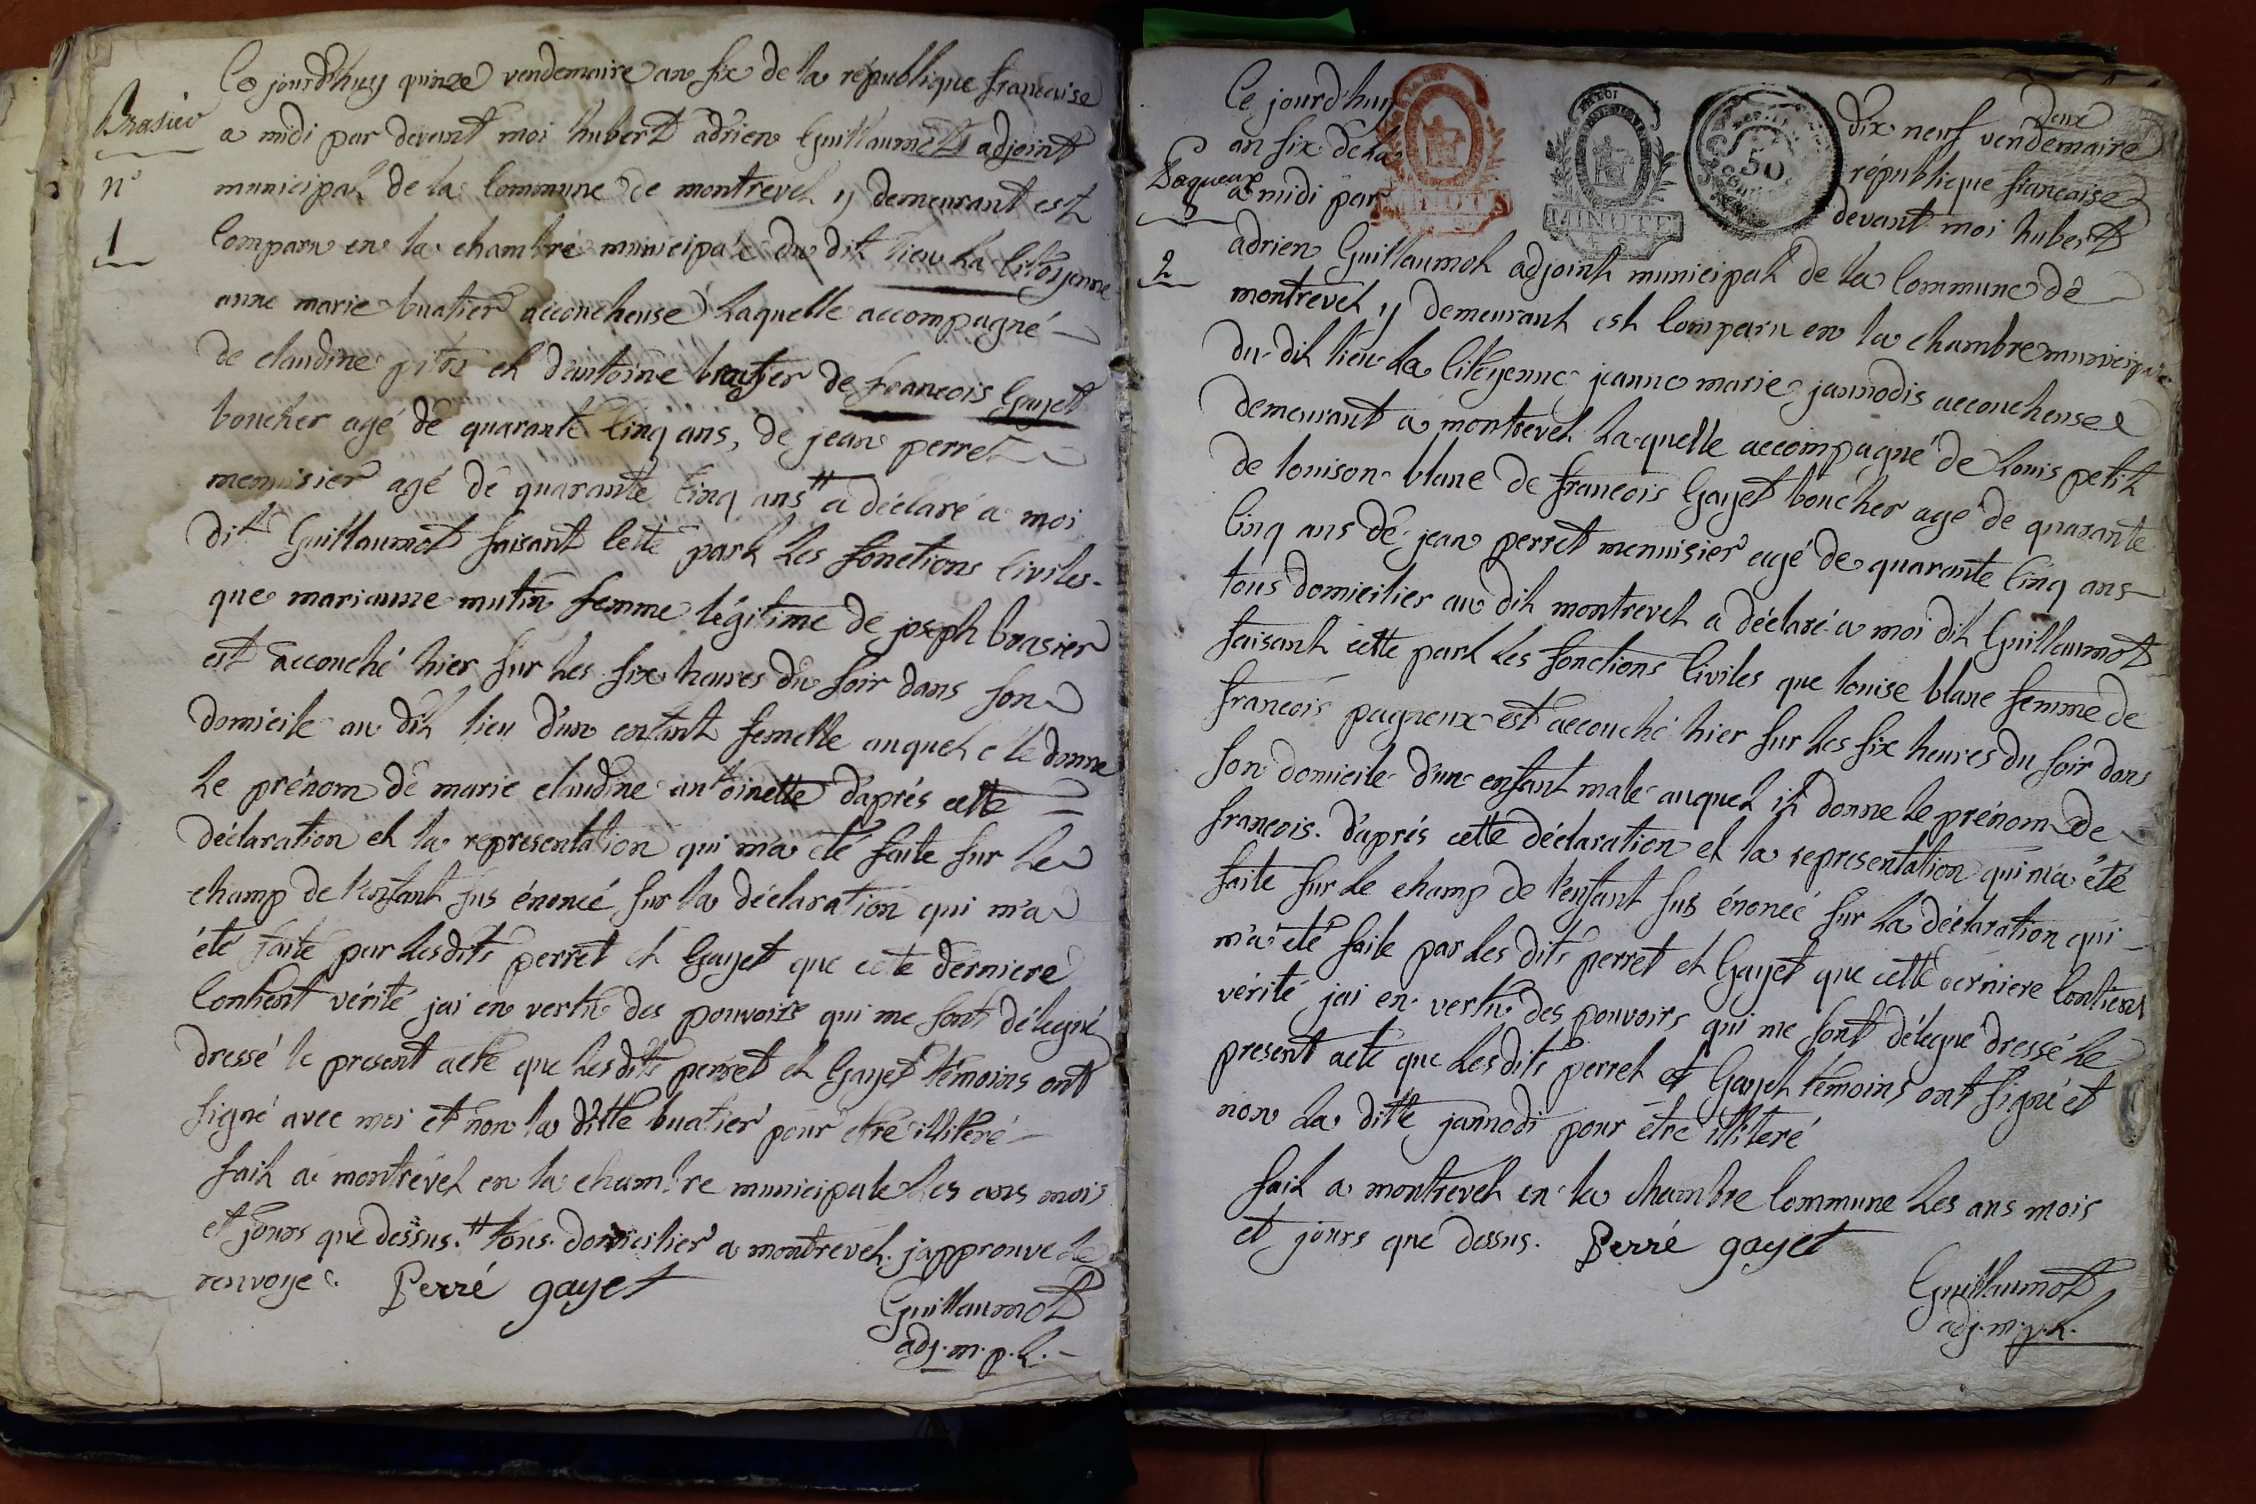 Ce jourdhuy quinze vendemaire an six de la république francaise
Brasier
a midi par devant moi hubert adrien Guillaumot adjoint
n°
municipal de la Commune de montrevel y demeurant est
1
Comparu en la chambre municipale du dit lieu la Citoyenne
anne marie buatier accoucheuse laquelle accompagné
de claudine et d'antoine de francois Gayet
boucher agé de quarante Cinq ans, de jean perret
menuisier agé de quarante Cinq ans # a déclaré a moi
dit Guillaumot faisant Cette part les fonctions Civiles
que marianne mutin femme légitime de joseph brasier
est accouché hier sur les six heures du soir dans son
domicile au dit lieu d'un enfant femelle auquel elle donne
le prénom de marie claudine antoinette d'aprés cette
déclaration et la representation qui m'a été faite sur le
champ de l'enfant sus énoncé sur la déclaration qui m'a
été faite par lesdits perret et Gayet que cete derniere
Contient vérité jai en vertu des pouvoirs qui me sont délegué
dressé le present acte que lesdits perret et Gayet témoins ont
signé avec moi et non la ditte buatier pour etre illiteré
fait a montrevel en la chambre municipale les ans mois
et jours que dessus. # tous domicilier a montrevel. japprouve le
renvoye. Perré gayet
Guillaumot
adj. m. p. l.
Ce jourd'huy dix neuf vendemaire
deux
an six de la république francaise
Paqueux
a midi par devant moi hubert
MINUTE
MINUTE
50
2
adrien Guillaumot adjoint municipal de la Commune de
montrevel y demeurant est Comparu en la chambre municipale
du dit lieu la Citoyenne jeanne marie jannodis accoucheuse
demeurant a montrevel laquelle accompagné de Louis petit
de louison blanc de francois Gayet boucher age de quarante
Cinq ans de jean perret menuisier agé de quarante Cinq ans
tous domicilier au dit montrevel a déclaré a moi dit Guillaumot
faisant cette part les fonctions Civiles que louise blanc femme de
francois pagneux est accouché hier sur les six heures du soir dans
son domicile d'un enfant male auquel il donne le prénom de
francois. d'aprés cette déclaration et la representation qui m'a été
faite sur le champ de l'enfant sus énoncé sur la déclaration qui
m'a été faite par les dits perret et Gayet que cette derniere Contient
vérité jai en vertu des pouvoirs qui me sont délegué dressé le
present acte que lesdits perret et Gayet témoins ont signé et
non la ditte jannodi pour être illiteré
fait a montrevel en la chambre Commune les ans mois
et jours que dessus. Perré gayet
Guillaumot
adj. m. p. l.